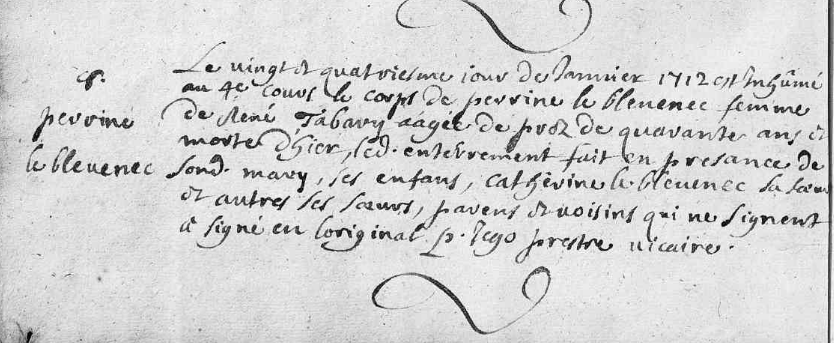 S.
perrine
le blevenec
Le vingt et quatriesme jour de Janvier 1712 est Inhûmé
au 4e cours le corps de perrine le blevenec femme
de René Tabary aagée de prez de quarante ans et
morte d'hier, led. enterrement fait en presance de
sond. mary, ses enfans, cathèrine le blevenec sa sœur
et autres ses sœurs, parens et voisins qui ne signent
à signé en loriginal p. Jego prestre vicaire.